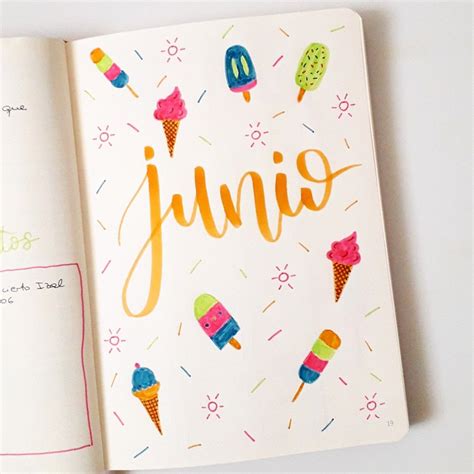 que
tos
uerto Isel
06
junio
19